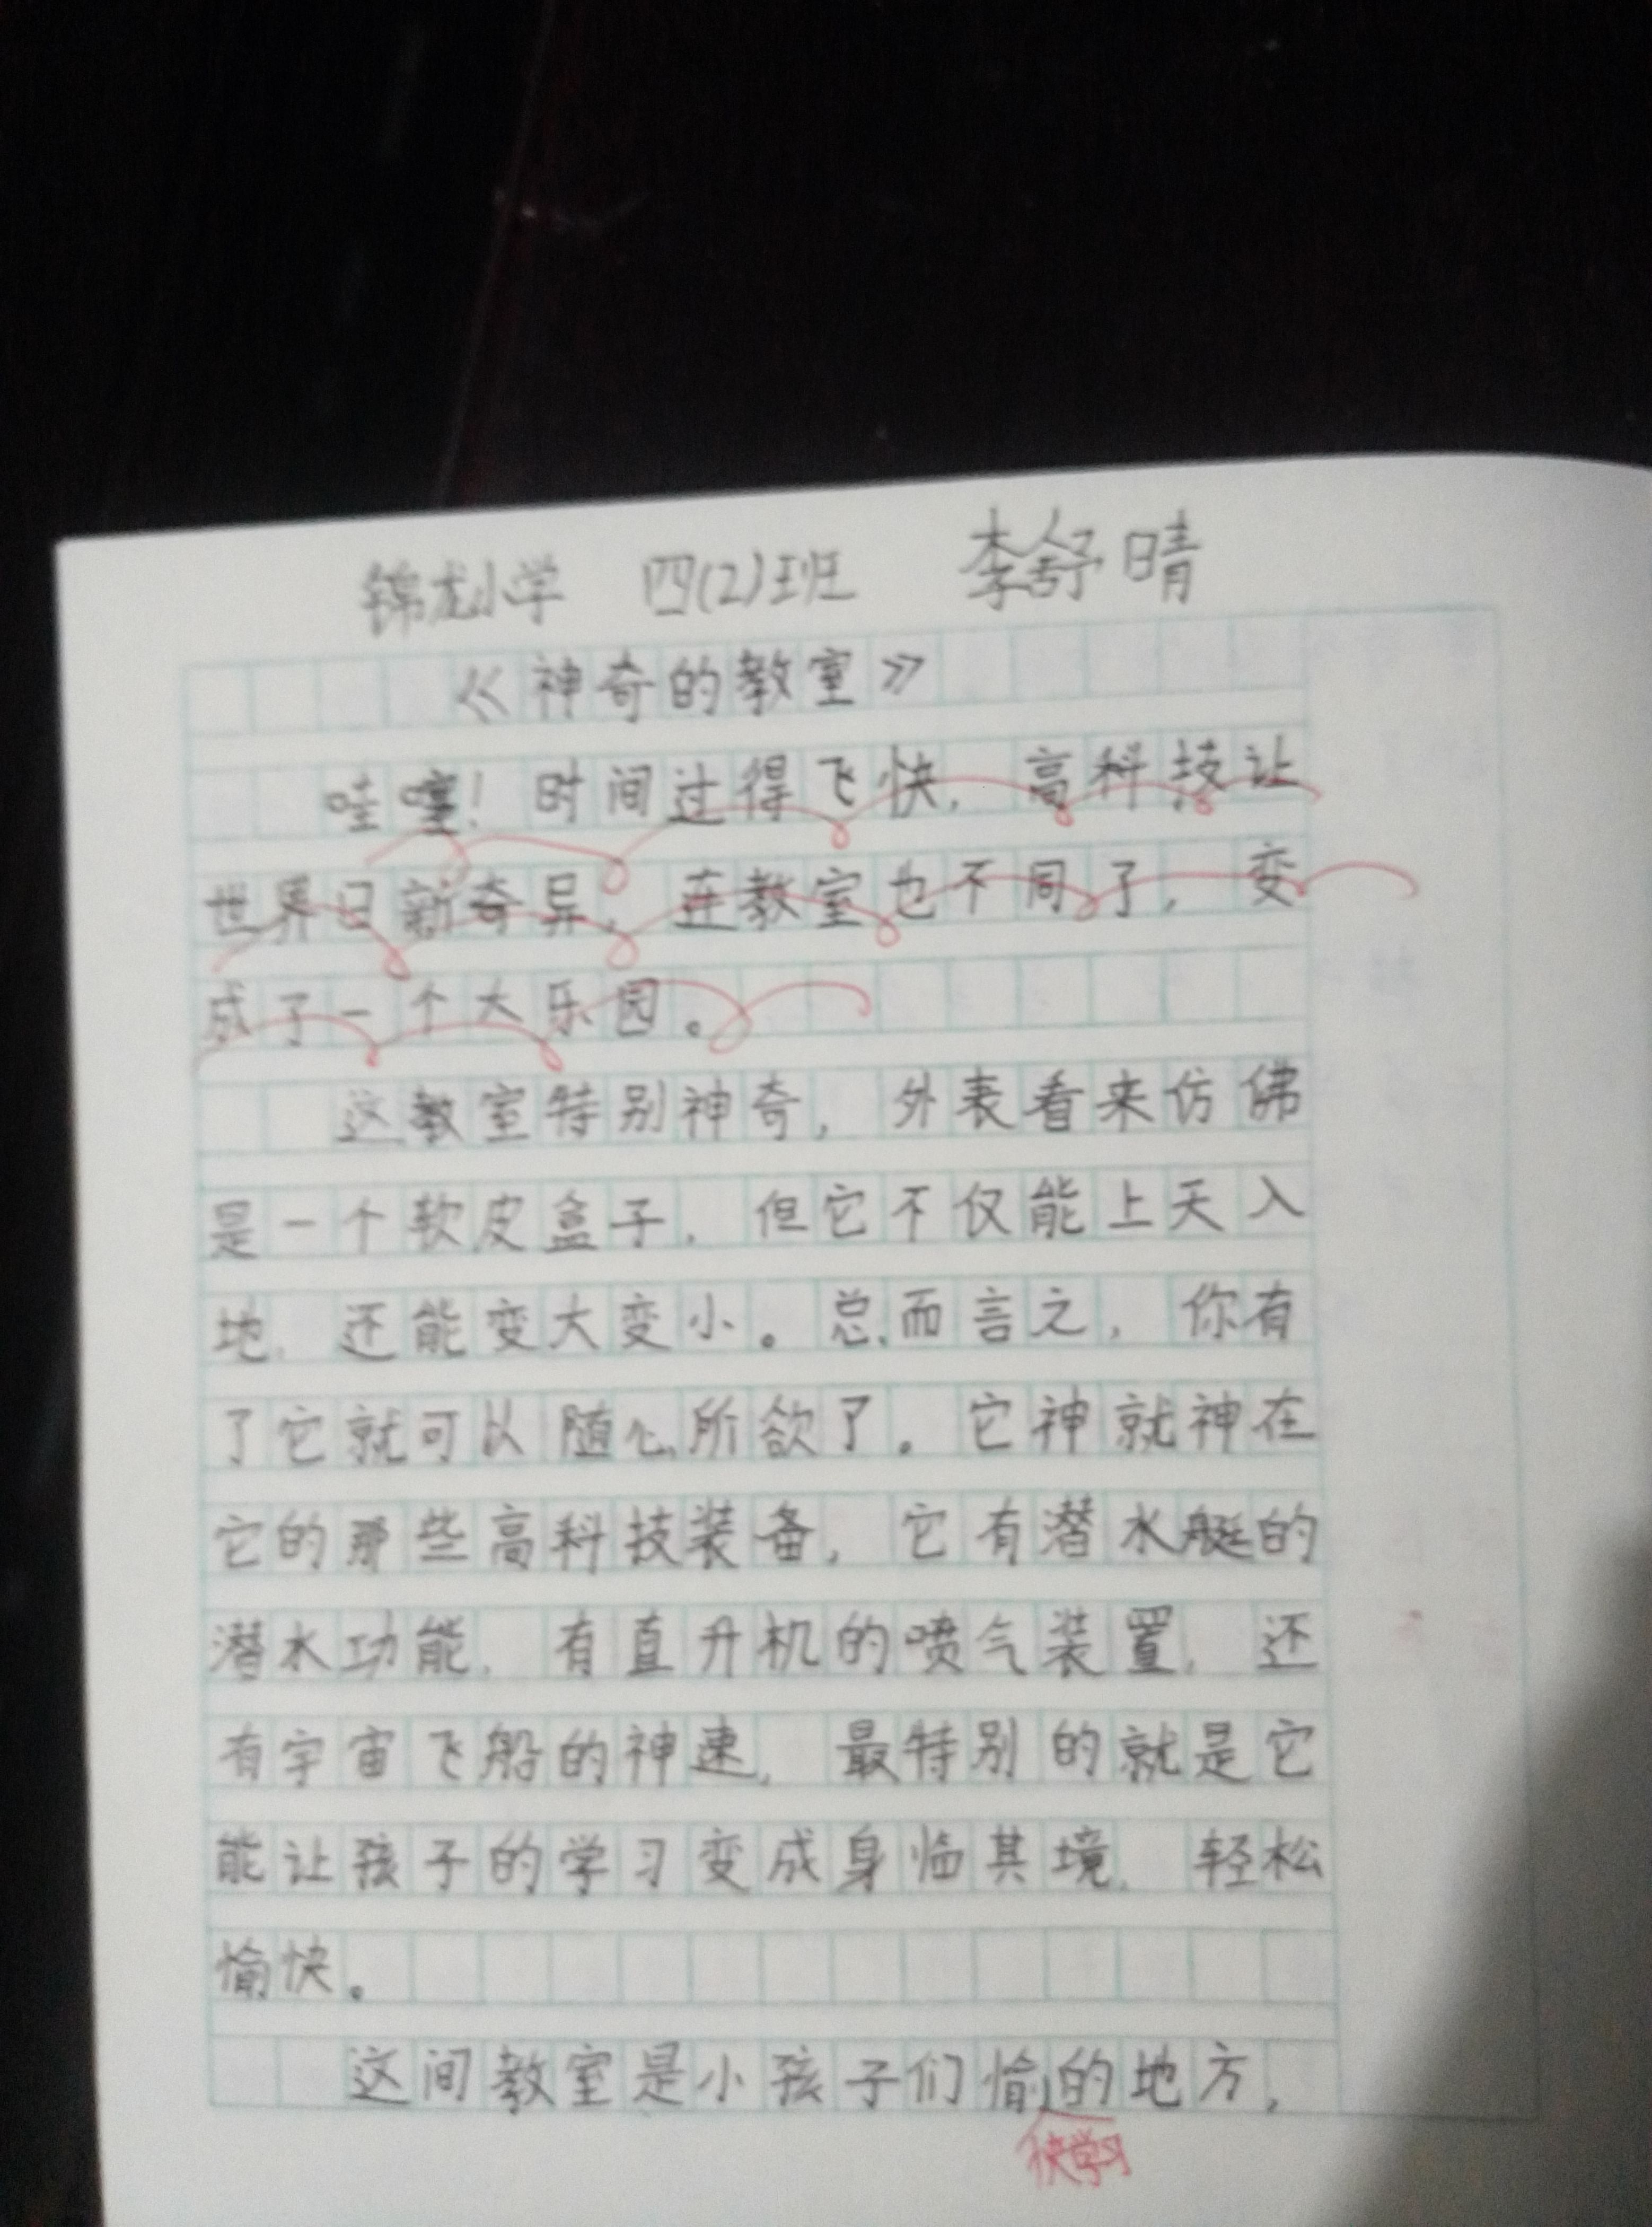 锦龙小学 四(2)班 李舒晴
《神奇的教室》
哇噻！时间过得飞快，高科技让
世界日新奇异，连教室也不同了，变
成了一个大乐园。
这教室特别神奇，外表看来仿佛
是一个软皮盒子，但它不仅能上天入
地，还能变大变小。总而言之，你有
了它就可以随心所欲了。它神就神在
它的那些高科技装备，它有潜水艇的
潜水功能，有直升机的喷气装置，还
有宇宙飞船的神速，最特别的就是它
能让孩子的学习变成身临其境，轻松
愉快。
这间教室是小孩子们愉的地方，
快学习